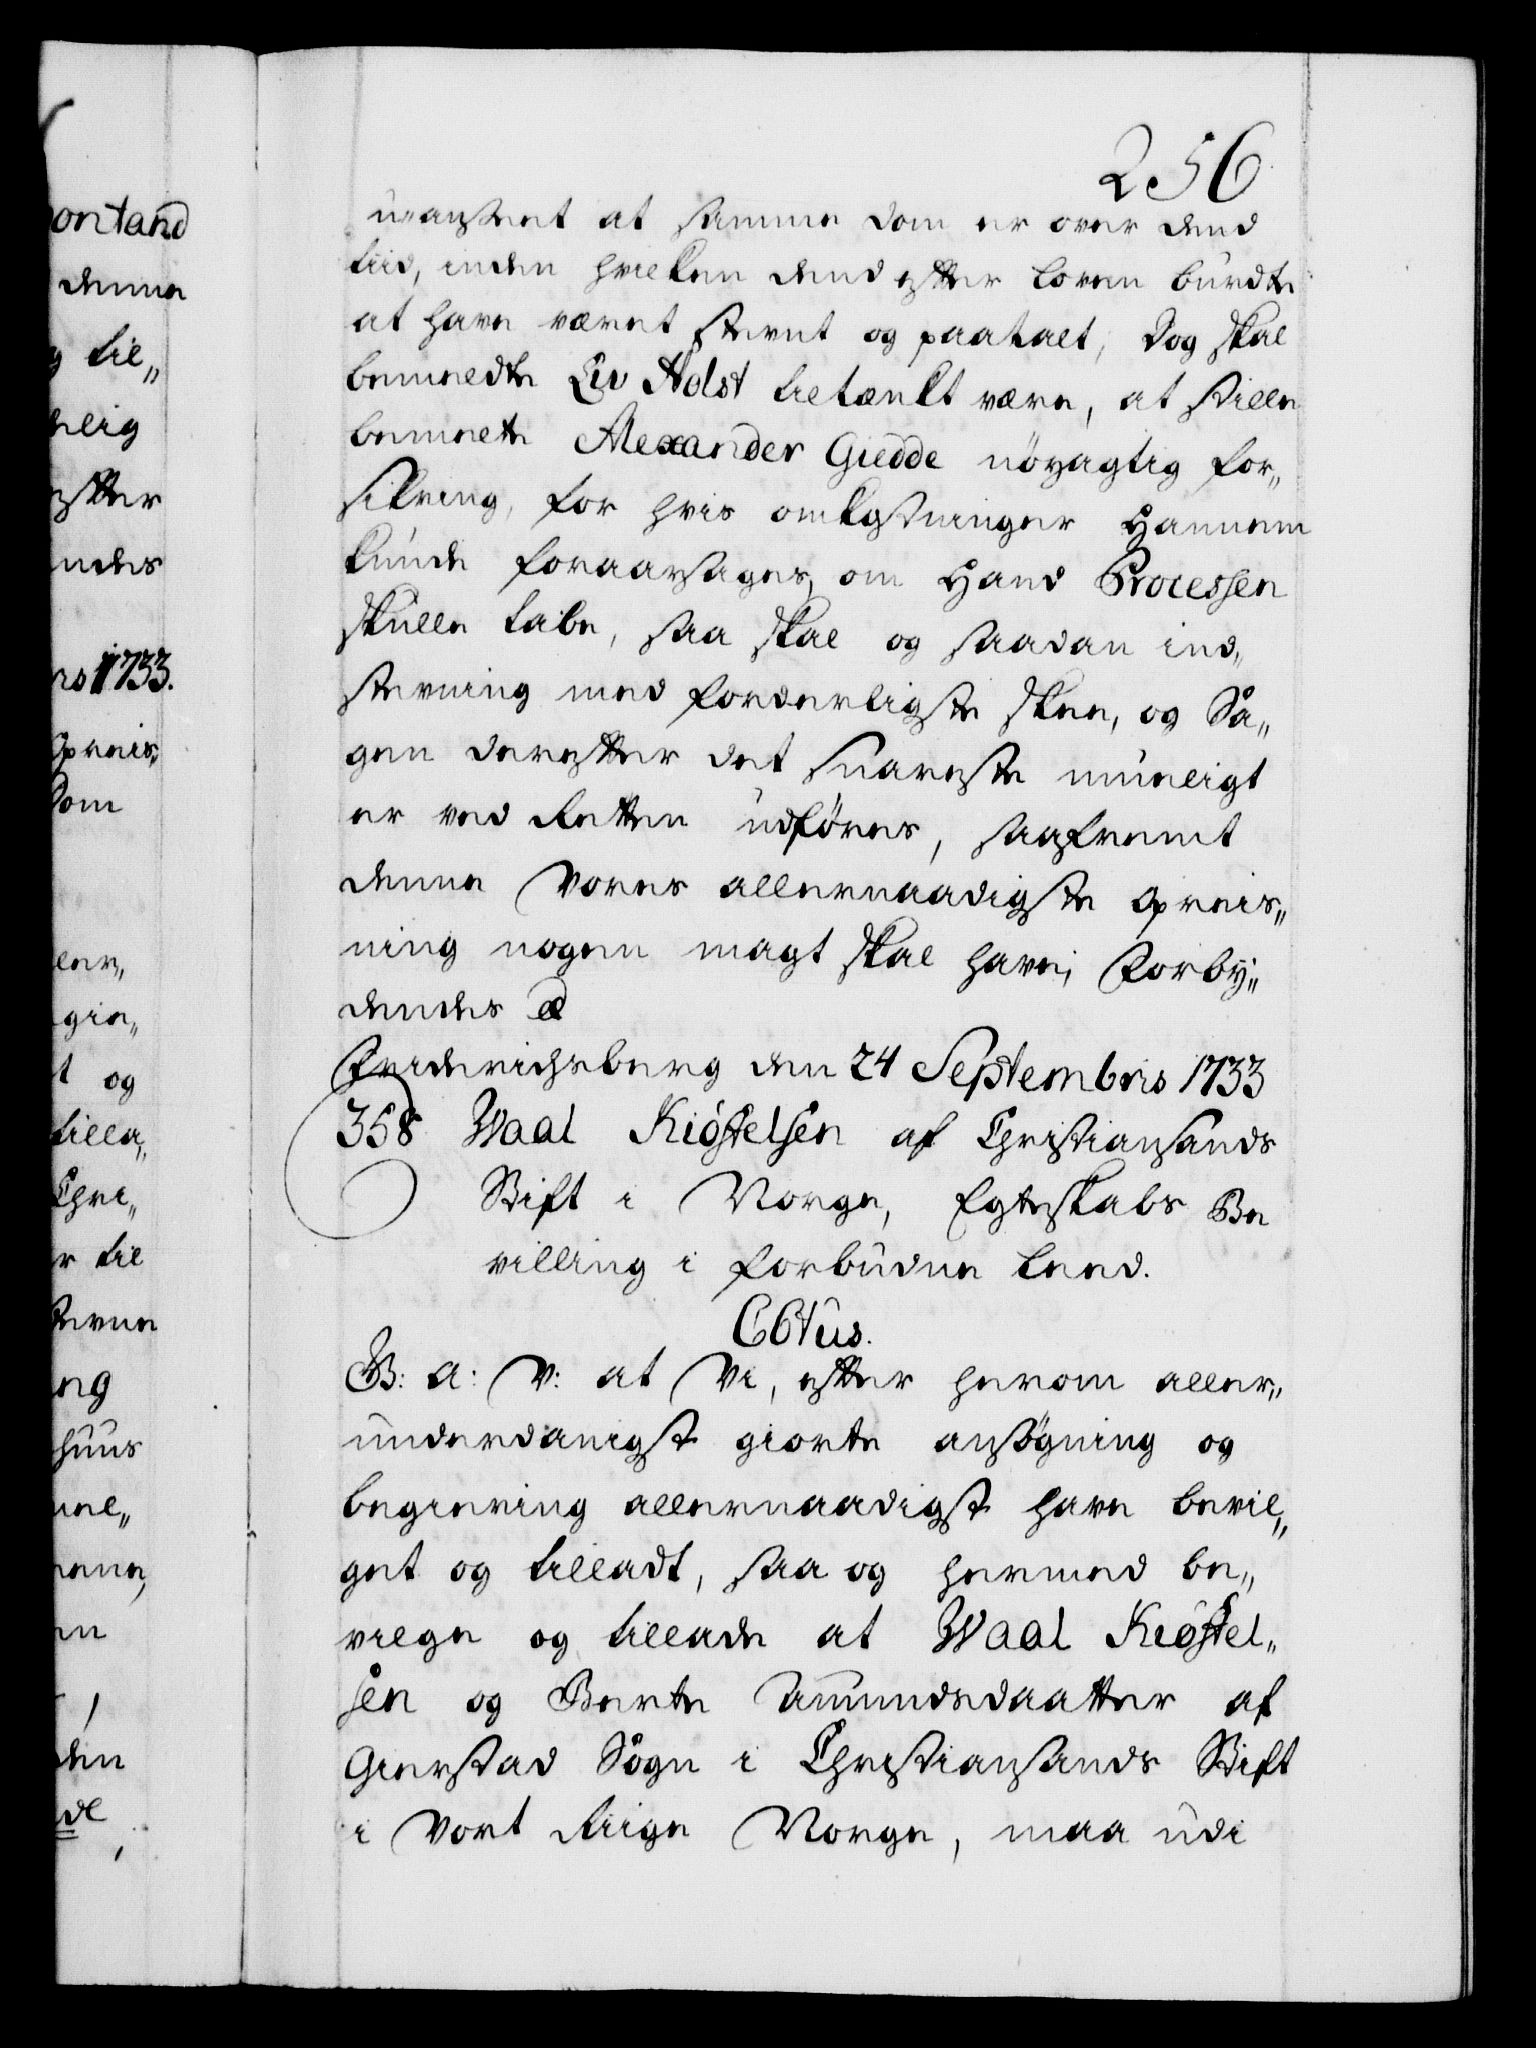 256
uanseet at samme dom er over dend
tiid, inden hvilken dend efter loven burdte
at have været stevnt og paatalt, Dog skal
bemeldte Liv Holst tiltænkt være, at stille
bemelte Alexander Giedde nöyagtig for„
sikring, for hvis omkostninger Hannem
kunde foraarsages, om Hand Processen
skulle tabe, saa skal og saadan ind„
stevning med forderligste skee, og Sa„
gen derefter det snareste mueligt
er ved Retten udföres, saafremt
denne Vores allernaadigste opreis„
ning nogen magt skal have; Forby„
dendes &
Friderichsberg den 24 Septembris 1733
358 Waal Kiöstelsen af Christiansands
Stift i Norge, Egteskabs Be
villing i forbudne Leed.
C6tus.
G: A: V: at Vi, efter herom aller„
underdanigst giorte ansögning og
begiering allernaadigst have bevil„
get og tilladt, saa og hermed be„
vilge og tillade at Waal Kiöstel„
sen og Berte Amundsdaatter af
Gierstad Sogn i Christiansands Stift
i Vort Riige Norge, maa udi
ontand
denne
til„
elig
efter
ndes
1733.
opreis„
Dom
gie„
t og
tilla„
Chri„
r til
huus